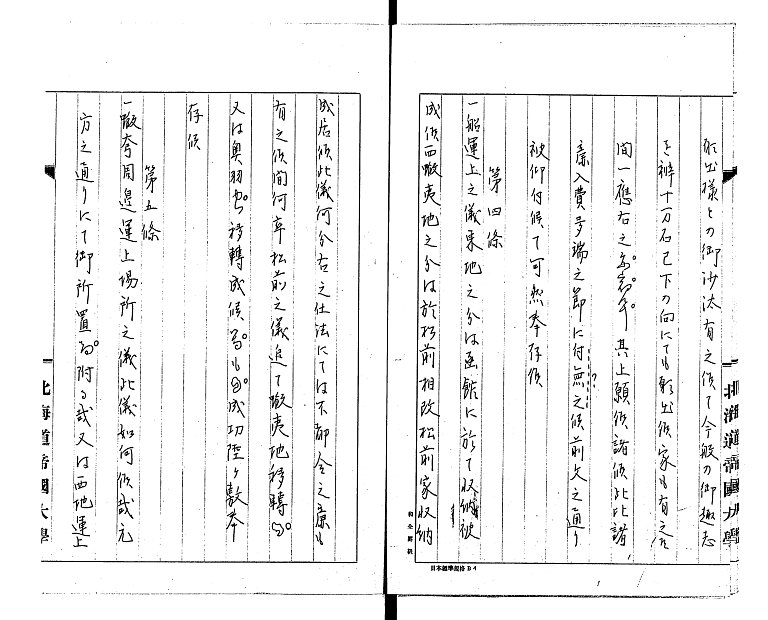 於出様との御沙汰有之候て今般の御趣志
を辨十一万石已下の向にても願出候家も有之候
間一應右之
其上願候諸候此上諸
索入費多端之節に付無之候前文之通り
?
被仰付候て可然奉存候
第四條
一船運上之儀東地之分は函館に於て収納被
成候西蝦夷地之分は於松前相改松前家収納
和全罫紙
日本標準規格B4
北海道帝國大學
成居候此儀何分右之仕法にては不都合之義も
有之候間何卒松前之儀追て蝦夷地移轉
又は奥羽
移轉成候
成功陸々敷奉
存候
第五條
一蝦夷周邊運上場所之儀此儀如何候哉元
方之通りにて御所置
附る哉又は西地運上
北海道帝國大學